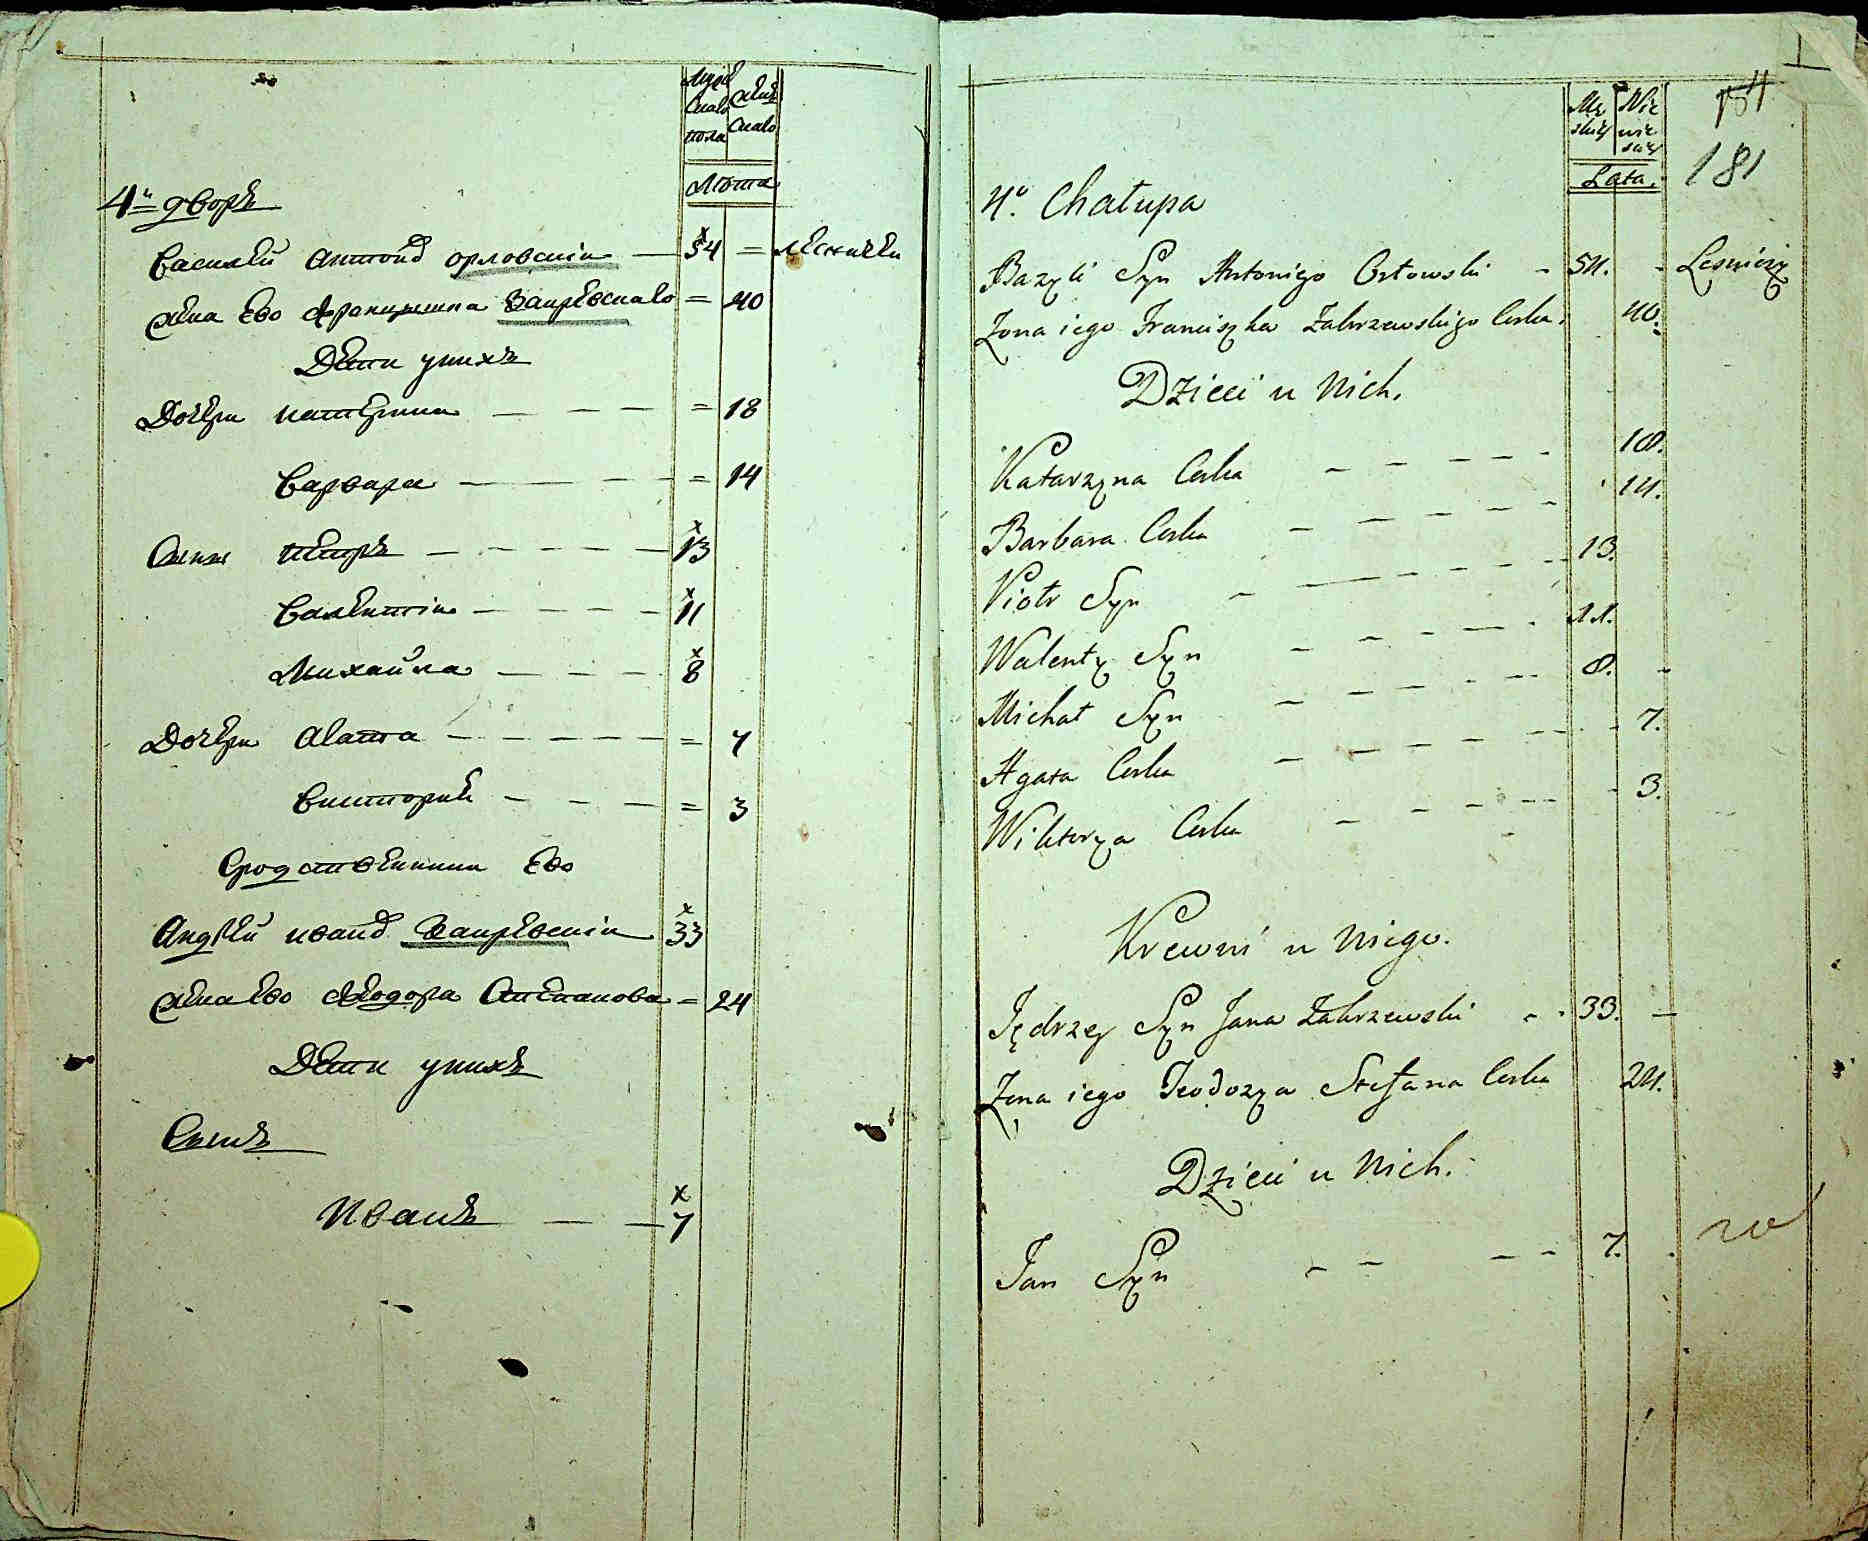 Мужескаго пола
Женскаго
Лѣта
4й дворъ
Василей Антонов Орловскiи — 54 = лесничеи
жена Ево Францышка Закревскаго = 40
Дети у нихъ
Дочери Катерина — — — = 18
Варвара — — — — = 14
Сыны Петръ — — — — — 13
Валентiи — — — — 11
Михайла — — — 8
Дочери Агата — — — — — = 7
Викторiя — — — = 3
Сродственники Ево
Андрей Иванов Закревскiи 33
жена Ево Феодора Степанова = 24
Дети у нихъ
Сынъ
Иванъ — — 7
Mę skiey
Nie wie skiey
Lata.
181
4o. Chałupa
Bazyli Syn Antoniego Orłowski - 54. - Leśniczy
Żona iego Franciszka Zakrzewskiego Corka. 40.
Dzieci u Nich.
Katarzyna Corka - - - - - 18.
Barbara Corka - - - - - 14.
Piotr Syn - - - - - 13.
Walenty Syn - - - - - 11.
Michał Syn - - - - - 8. -
Agata Corka - - - - - 7.
Wiktorya Corka - - - - - 3.
Krewni u Niego.
Jędrzey Syn Jana Zakrzewski - - 33. -
Żona iego Teodozya Stefana Corka 24.
Dzieci u Nich.
Jan Syn - - - - 7. .